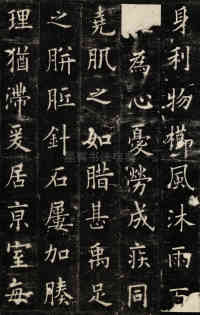 身利物櫛風沐雨百
為心憂勞成疾同
堯肌之如腊甚禹足
之胼胝針石屢加腠
理猶滯爰居亰室每